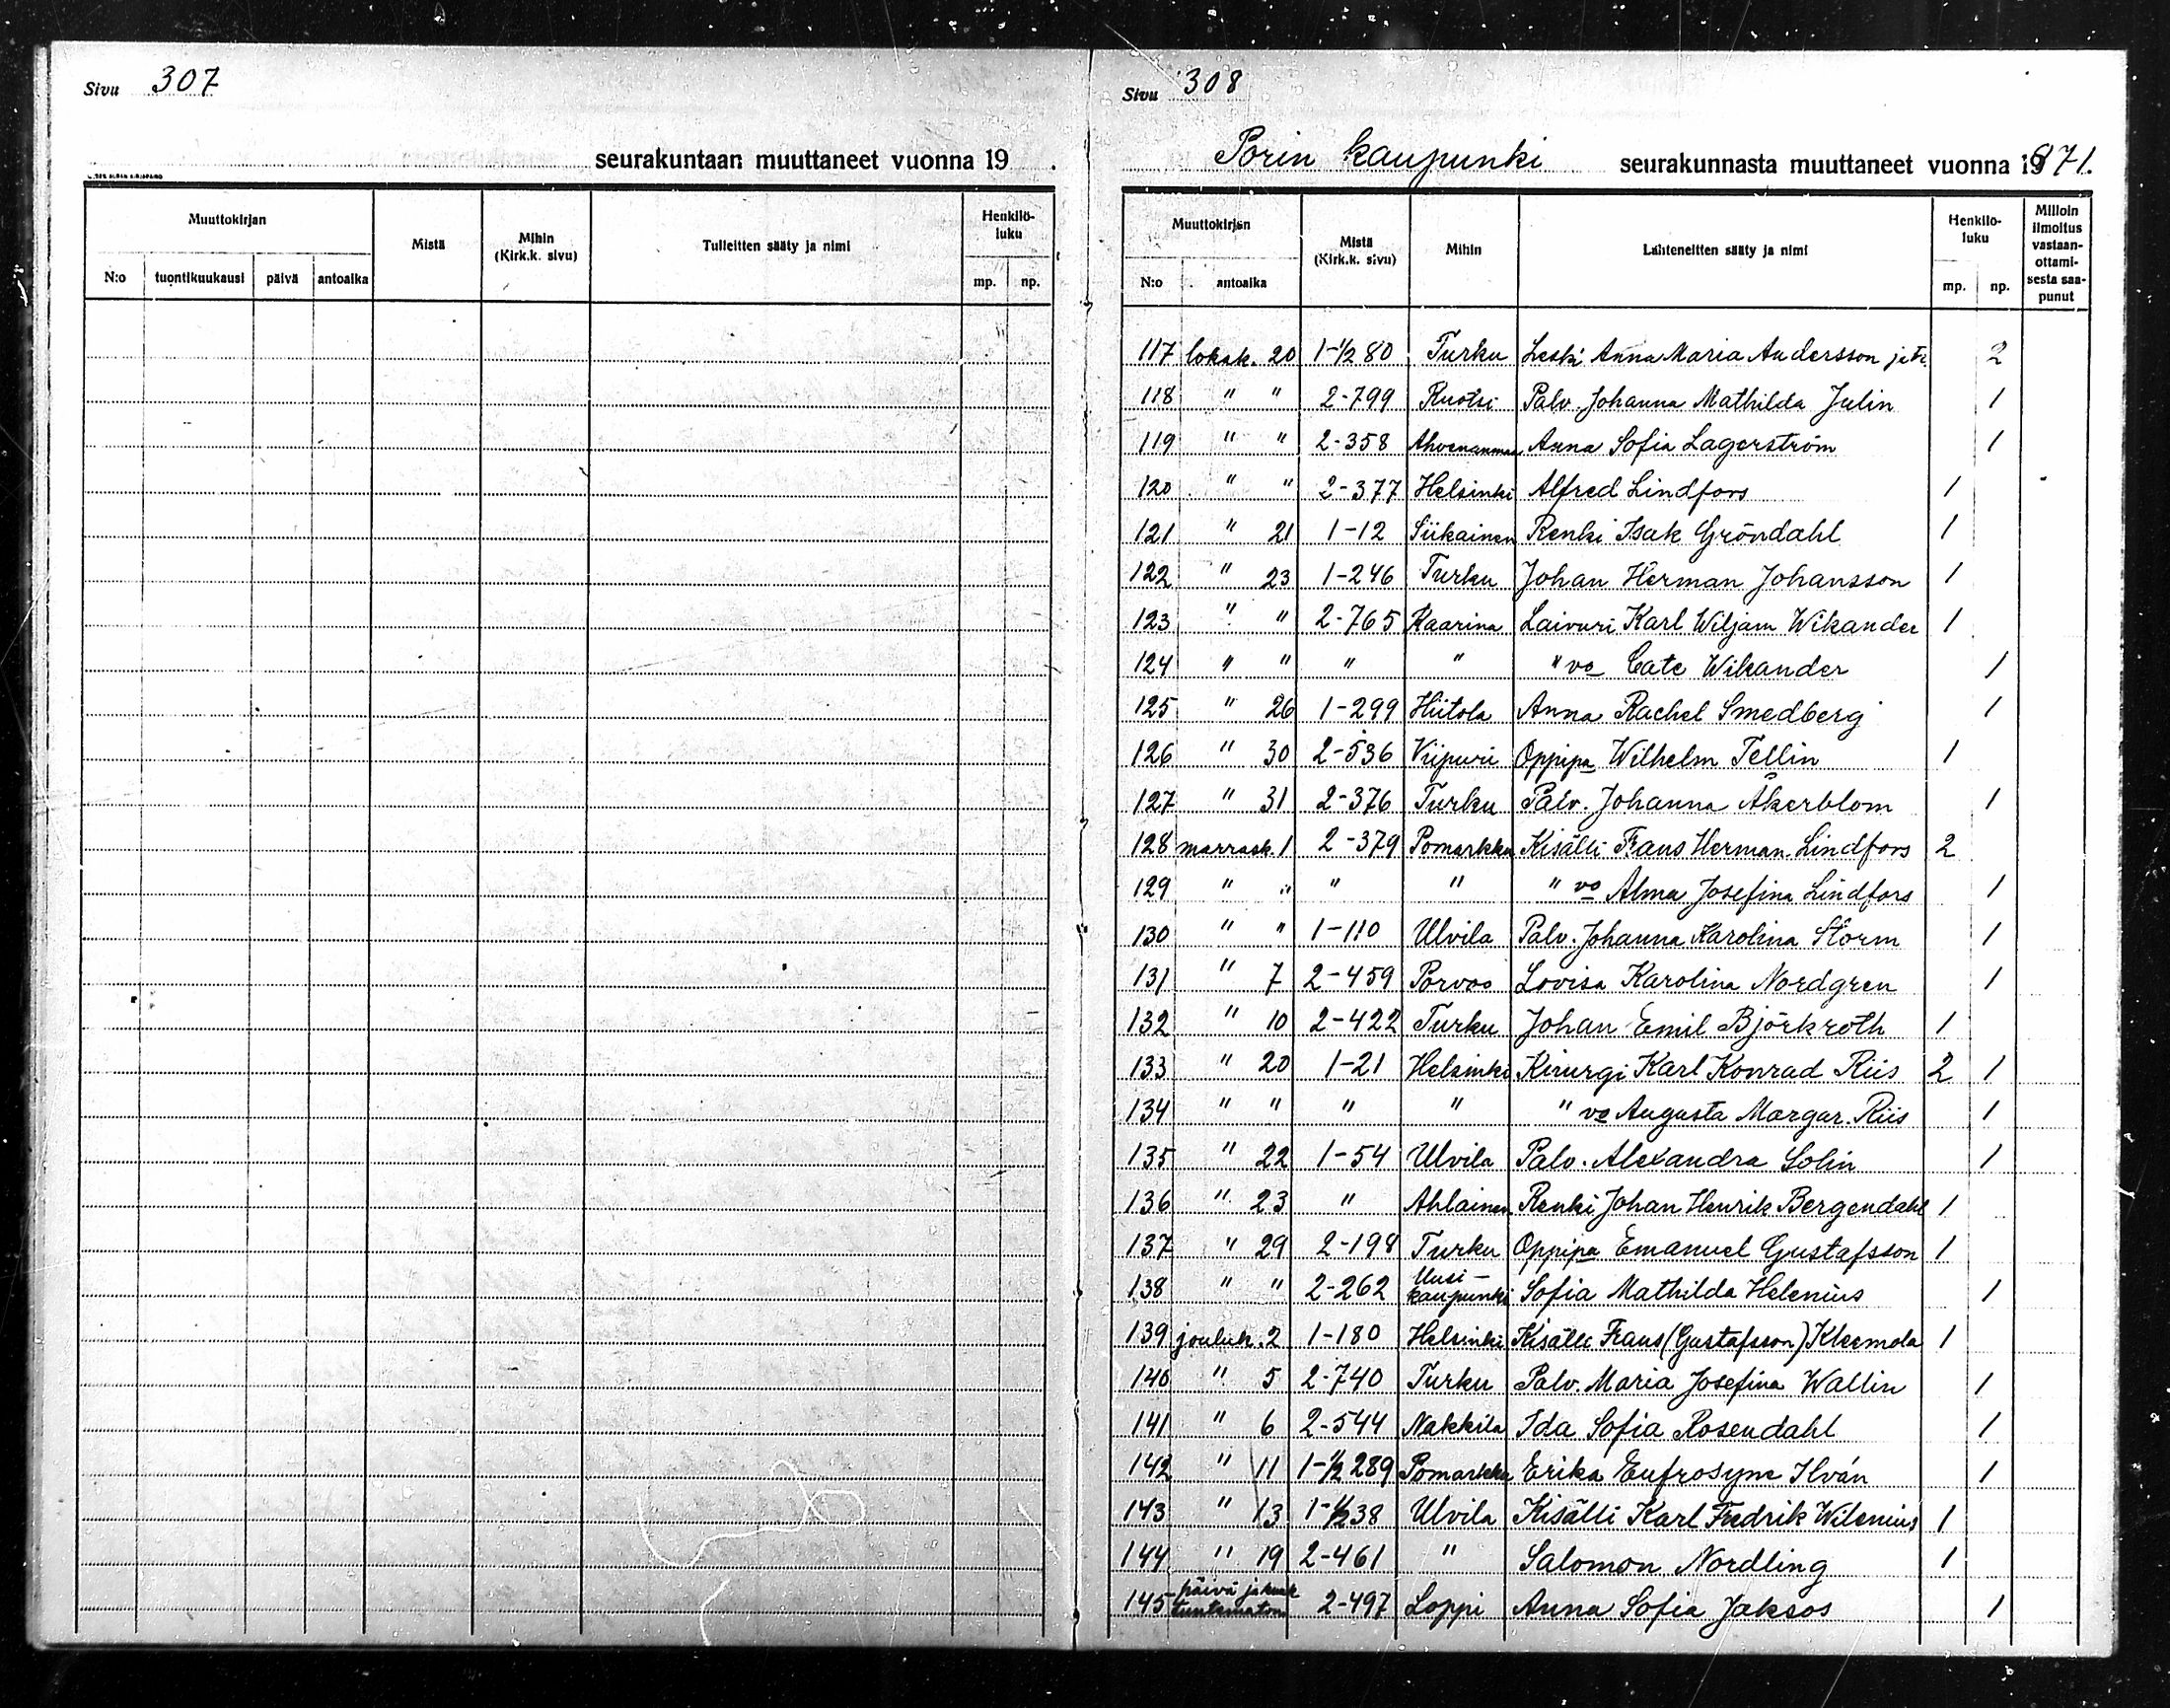 Sivu 307
seurakuntaan muuttaneet vuonna 19 .
Muuttokirjan
Mistä
Mihin
(Kirk.k. sivu)
Tulleitten sääty ja nimi
Henkilö-
luku
N:o tuontikuukausi päivä antoaika mp. np.
Sivu 308
Porin kaupunki seurakunnasta muuttaneet vuonna 1871.
Muuttokirjan
Mistä
(Kirk.k. sivu)
Mihin
Lähteneitten sääty ja nimi
Henkilö-
luku
Milloin
ilmoitus
vastaan-
ottami-
sesta saa-
punut
N:o antoaika mp. np.
117 lokak. 20 1-1/2 80 Turku Leski Anna Maria Andersson 2
118 " " 2-799 Ruotsi Palv. Johanna Mathilda Julin 1
119 " " 2-358 Ahvenanmaa Anna Sofia Lagerström 1
120 " " 2-377 Helsinki Alfred Lindfors 1
121 " 21 1-12 Siikainen Renki Isak Gröndahl 1
122 " 23 1-246 Turku Johan Herman Johansson 1
123 " " 2-765 Kaarina Laivuri Karl Wiljam Wikander 1
124 " " " " " vo Cate Wikander 1
125 " 26 1-299 Hiitola Anna Rachel Smedberg 1
126 " 30 2-536 Viipuri Oppipa Wilhelm Tellin 1
127 " 31 2-376 Turku Palv. Johanna Åkerblom 1
128 marrask. 1 2-379 Pomarkku Kisälli Frans Herman Lindfors 2
129 " " " " " vo Alma Josefina Lindfors 1
130 " " 1-110 Ulvila Palv. Johanna Karolina Storm 1
131 " 7 2-459 Porvoo Lovisa Karolina Nordgren 1
132 " 10 2-422 Turku Johan Emil Björkroth 1
133 " 20 1-21 Helsinki Kirurgi Karl Konrad Riis 2 1
134 " " " " " vo Augusta Margar. Riis 1
135 " 22 1-54 Ulvila Palv. Alexandra Solin 1
136 " 23 " Ahlainen Renki Johan Henrik Bergendahl 1
137 " 29 2-198 Turku Oppipa Emanuel Gustafsson 1
138 " " 2-262 Uusi-
kaupunki Sofia Mathilda Helenius 1
139 jouluk. 2 1-180 Helsinki Kisälli Frans (Gustafsson) Kleemola 1
140 " 5 2-740 Turku Palv. Maria Josefina Wallin 1
141 " 6 2-544 Nakkila Ida Sofia Rosendahl 1
142 " 11 1-1/2 289 Pomarkku Erika Eufrosyne Ilván 1
143 " 13 1-1/2 38 Ulvila Kisälli Karl Fredrik Wilenius 1
144 " 19 2-461 " Salomon Nordling 1
145 päivä ja kuuk
tuntematon 2-497 Loppi Anna Sofia Jaksos 1